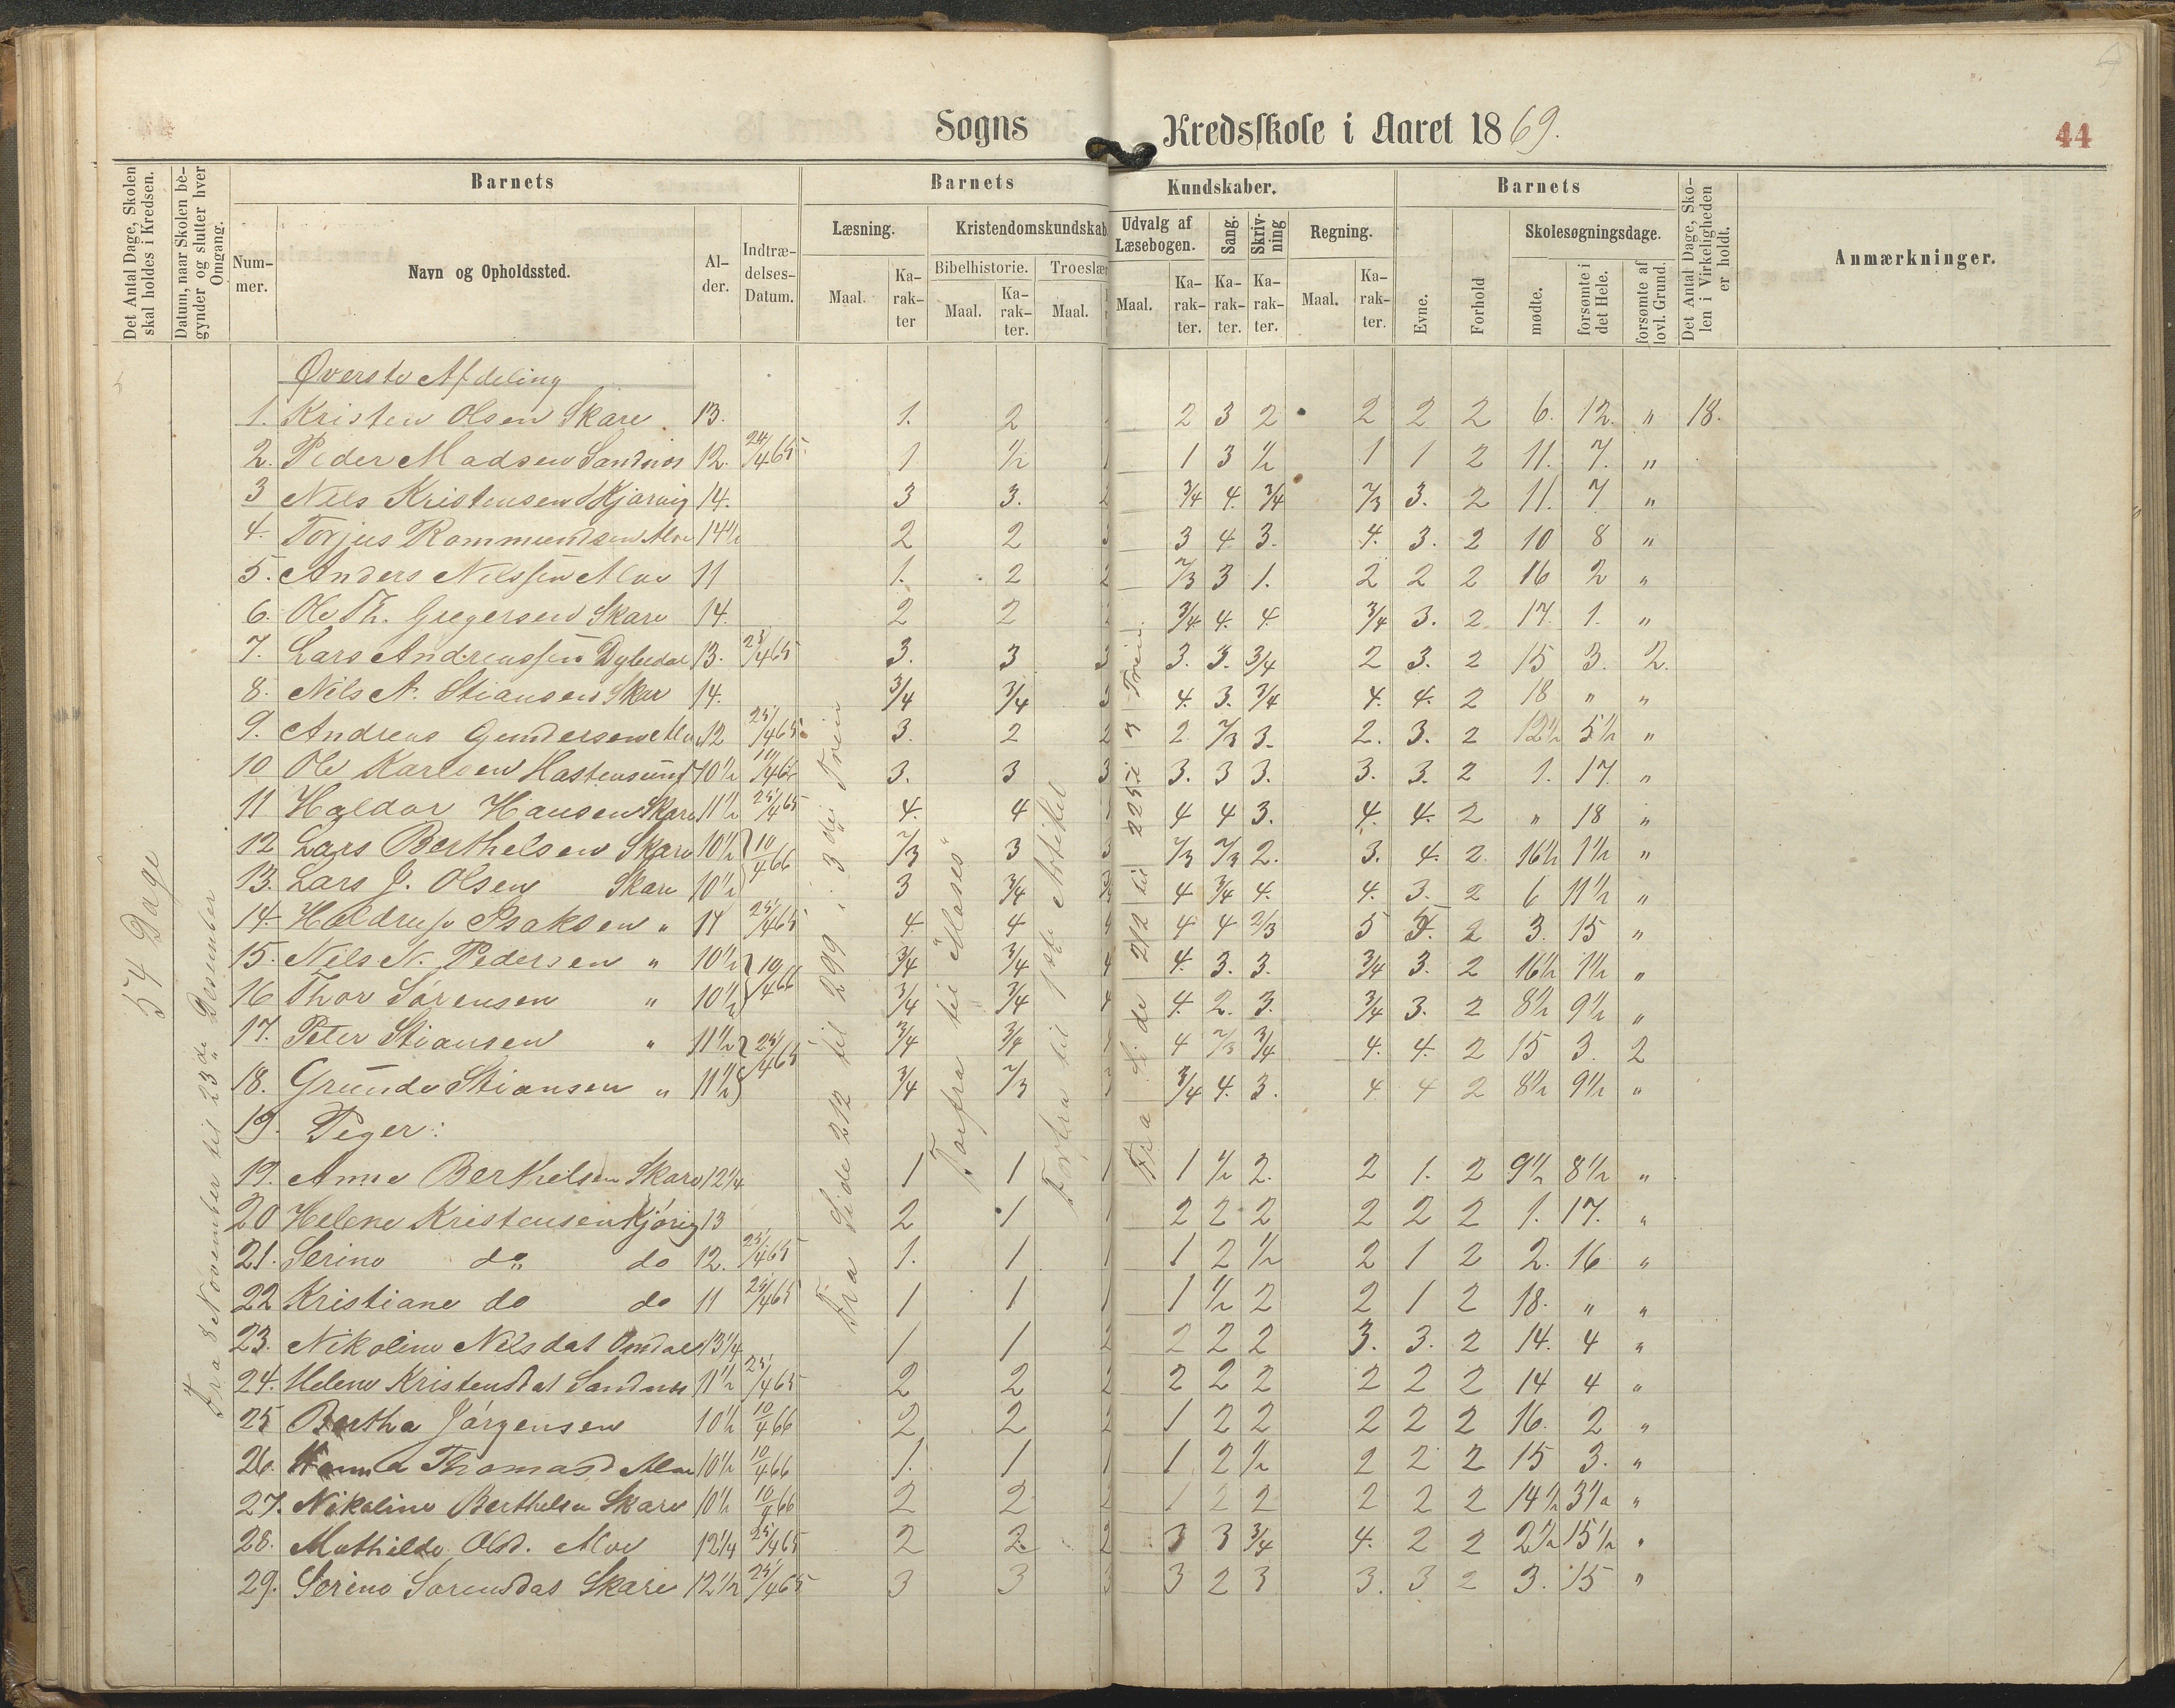 Sogns Kredsskole i Aaret 1869.
44
Det Antal Dage, Skolen skal holdes i Kredsen.
Datum, naar Skolen begynder og slutter hver Omgang.
Barnets
Barnets
Kundskaber.
Barnets
Det Antal Dage, Skolen i Virkeligheden er holdt.
Anmærkninger.
Nummer.
Navn og Opholdssted.
Alder.
Indtrædelses-Datum.
Læsning.
Kristendomskundskab.
Udvalg af Læsebogen.
Sang.
Skrivning
Regning.
Evne.
Forhold
Skolesøgningsdage.
Bibelhistorie.
Troeslær
Maal.
Karakter
Maal.
Karakter.
Maal.
Maal.
Karakter.
Karakter.
Karakter.
Maal.
Karakter.
mødte.
forsømte i det Hele.
forsømte af lovl. Grund.
54 Dage
Fra 8 November til 23de Desember
Fra Side 212 til 299 i 3die Trin
Forfra til "Moses"
Forfra til 1ste Artikel
Fra Side 212 til 225 i 3 Trin.
Øverste Afdeling
1. Kristen Olsen Skare 13. 1. 2 2 3 2 2 2 2 6. 12. " 18.
2. Peder Madsen Sandnes 12. 24/4 65 1 1/2 1 1 3 1/2 1 1 2 11. 7. "
3 Nils Kristensen Kjørvig 14. 3 3. 2 3/4 4. 3/4 2/3 3. 2 11. 7 "
4. Torjus Rommundsen Alve 14 1/2 2 2 3 3 4 3. 4. 3. 2 10 8 "
5. Anders Nilssen Alve 11 1. 2 2 2/3 3 1. 2 2 2 16 2 "
6. Ole Th. Gregersen Skare 14. 2 2 2 3/4 4. 4. 3/4 3. 2 17. 1. "
7. Lars Andreassen 13. 25/4 65 3. 3 3 3. 3. 3/4 2 3. 2 15 3. 2.
8. Nils A. Stiansen Skar 14. 3/4 3/4 3 4. 3. 3/4 4. 4. 2 18 " "
9. Andreas Gundersen Alve 12 25/4 65 3. 2 2 2 2/3 3. 2. 3. 2 12 1/2 5 1/2 "
10 Ole Karlsen Hastensund 10 1/2 10/4 66 3. 3 3 3. 3 3. 3. 3. 2 1. 17. "
11 Haldor Hansen Skare 11 1/2 25/4 65 4. 4 4 4 3. 4. 4. 2 " 18 "
12 Lars Berthelsen Skare 10 1/2 10/4 66 2/3 3 3 2/3 2/3 2. 3. 4. 2. 16 1/2 1 1/2 "
13. Lars J. Olsen Skare 10 1/2 3 3/4 4 3/4 4. 4. 3. 2 6 11 1/2 "
14. Isaksen " 11 25/4 65 4. 4 4 4 4 2/3 5 5. 2 3. 15 "
15. Nils N. Pedersen " 10 1/2 10/4 66 3/4 3/4 4 4. 3. 3. 3/4 3. 2 16 1/2 1 1/2 "
16 Thor Sørensen " 10 1/2 3/4 3/4 4 4. 2. 3. 3/4 3. 2 8 1/2 9 1/2 "
17. Peter Stiansen " 11 1/2 25/4 65 3/4 3/4 4 2/3 3/4 4. 4. 2 15 3. 2
18. Grunde Stiansen " 11 1/2 3/4 2/3 3 3/4 4. 3. 4 4 2 8 1/2 9 1/2 "
19. Piger:
19. Anne Berthelsen Skare 12 1/4 1 1 1 1 1/2 2. 2 1. 2 9 1/2 8 1/2 "
20 Helene Kristensen Kjørvig 13 2 1 1 2 2 2 2 2 2 1. 17. "
21. Serine do do 12. 25/4 65 1. 1 1 1 2 1/2 2 1 2 2. 16 "
22 Kristiane do do 11 25/4 65 1 1 1 1 1/2 2 2 1 2 18. " "
23. Nikoline Nilsdat Omdal 13 1/4 1 1 2 2 2 2 3. 3. 2 14. 4 "
24. Helene Kristensdat Sandnes 11 1/2 25/4 65 2 2 2 2 2 2 2 2 2 14 4 "
25 Bertha Jørgensen 10 1/2 10/4 66 2 2 2 1 2 2 2 2 2 16. 2 "
26. Hanna Thomasd Alve 10 1/2 10/4 66 1. 1 1 1 2 1/2 2 2 2 15 3. "
27. Nikoline Berthelsen Skare 10 1/2 10/4 66 2 2 2 1 2 2 2 2 2 14 1/2 3 1/2 "
28. Mathilde Olsd. Alve 12 1/4 25/4 65 2 2. 2 3 3 3/4 4. 2 2 2 1/2 15 1/2 "
29. Serine Sørensdat Skare 12 1/2 25/4 65 3 3 3 3 2 3 3. 3 2 3. 15 "